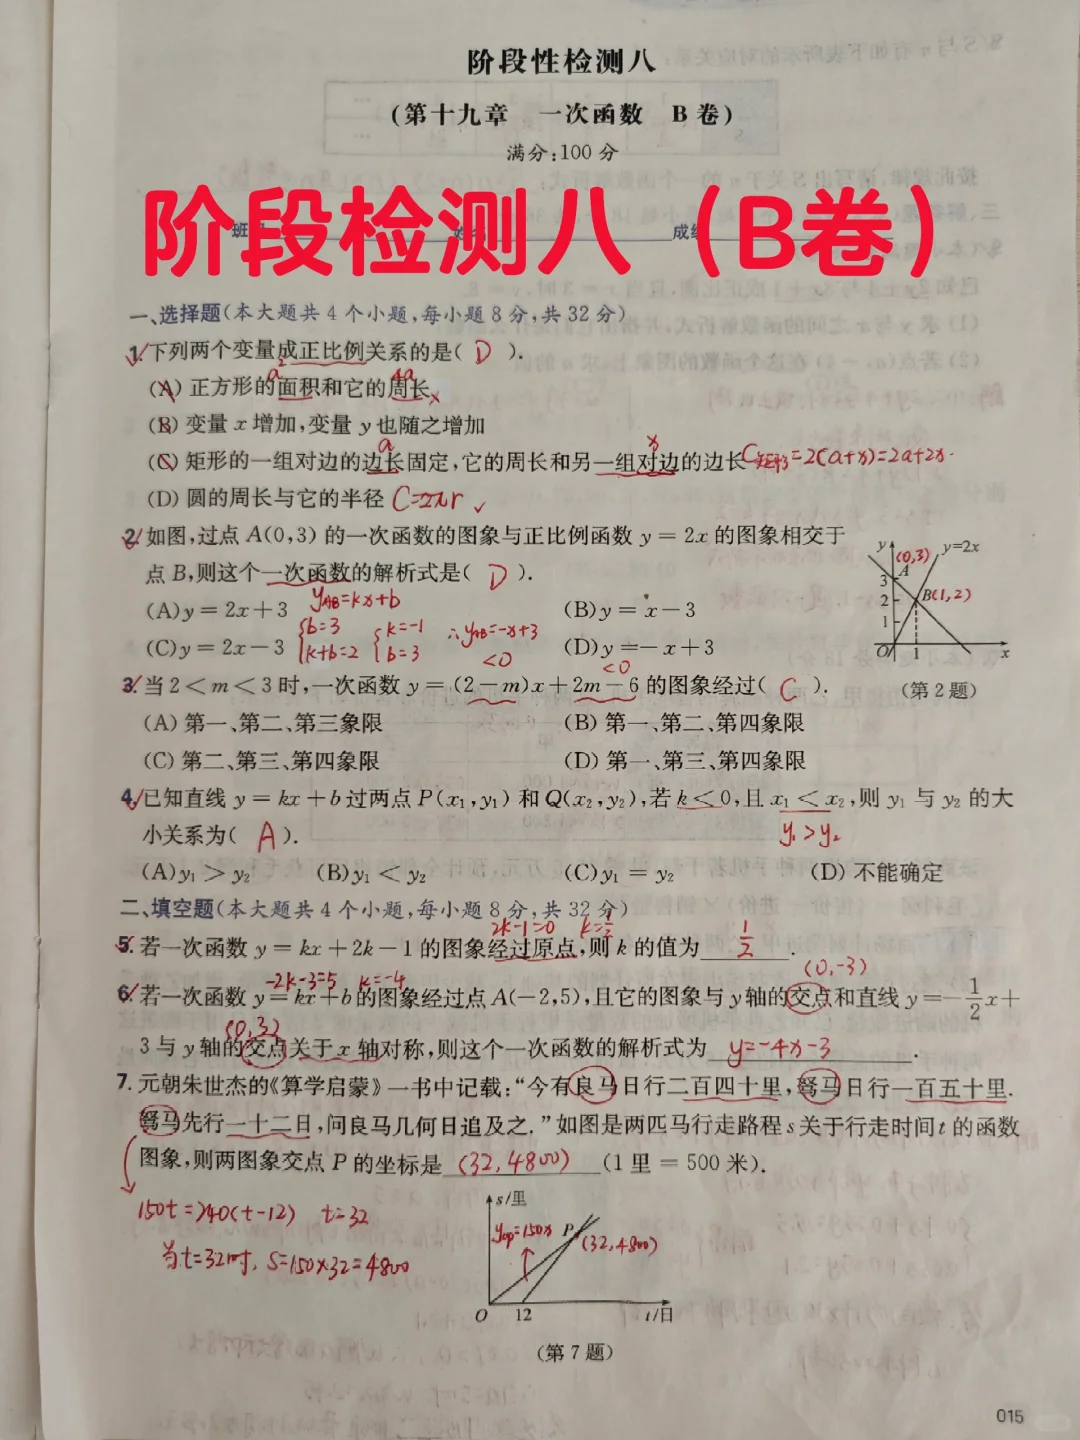 阶段性检测八
(第十九章 一次函数 B 卷)
满分:100 分
阶段检测八（B卷）
一、选择题(本大题共 4 个小题,每小题 8 分,共 32 分)
1. 下列两个变量成正比例关系的是( D ).
a² 4a
(A) 正方形的面积和它的周长 ×
(B) 变量 x 增加,变量 y 也随之增加
a x
(C) 矩形的一组对边的边长固定,它的周长和另一组对边的边长 C矩形=2(a+x)=2a+2x.
(D) 圆的周长与它的半径 C=2πr ✓
2. 如图,过点 A(0,3) 的一次函数的图象与正比例函数 y = 2x 的图象相交于
点 B,则这个一次函数的解析式是( D ).
(A) y = 2x + 3 yAB=kx+b (B) y = x − 3
(C) y = 2x − 3 {b=3 k+b=2 {k=-1 b=3 ∴yAB=-x+3 (D) y = − x + 3
y
(0,3)
y=2x
3
A
2
B(1,2)
1
O
1
x
(第 2 题)
<0 <0
3. 当 2 < m < 3 时,一次函数 y = (2 − m)x + 2m − 6 的图象经过( C ).
(A) 第一、第二、第三象限 (B) 第一、第二、第四象限
(C) 第二、第三、第四象限 (D) 第一、第三、第四象限
4. 已知直线 y = kx + b 过两点 P(x₁,y₁) 和 Q(x₂,y₂),若 k < 0,且 x₁ < x₂,则 y₁ 与 y₂ 的大
小关系为( A ). y₁>y₂
(A) y₁ > y₂ (B) y₁ < y₂ (C) y₁ = y₂ (D) 不能确定
二、填空题(本大题共 4 个小题,每小题 8 分,共 32 分)
2k-1=0 k=1/2
5. 若一次函数 y = kx + 2k − 1 的图象经过原点,则 k 的值为 1/2 .
-2k-3=5 k=-4 (0,-3)
6. 若一次函数 y = kx + b 的图象经过点 A(−2,5),且它的图象与 y 轴的交点和直线 y = −1/2x +
(0,3)
3 与 y 轴的交点关于 x 轴对称,则这个一次函数的解析式为 y=-4x-3 .
7. 元朝朱世杰的《算学启蒙》一书中记载:“今有良马日行二百四十里,驽马日行一百五十里.
驽马先行一十二日,问良马几何日追及之.”如图是两匹马行走路程 s 关于行走时间 t 的函数
图象,则两图象交点 P 的坐标是 (32,4800) (1 里 = 500 米).
150t=240(t-12) t=32
当t=32时, S=150×32=4800
s/里
yop=150x
P
(32,4800)
O
12
t/日
(第 7 题)
015